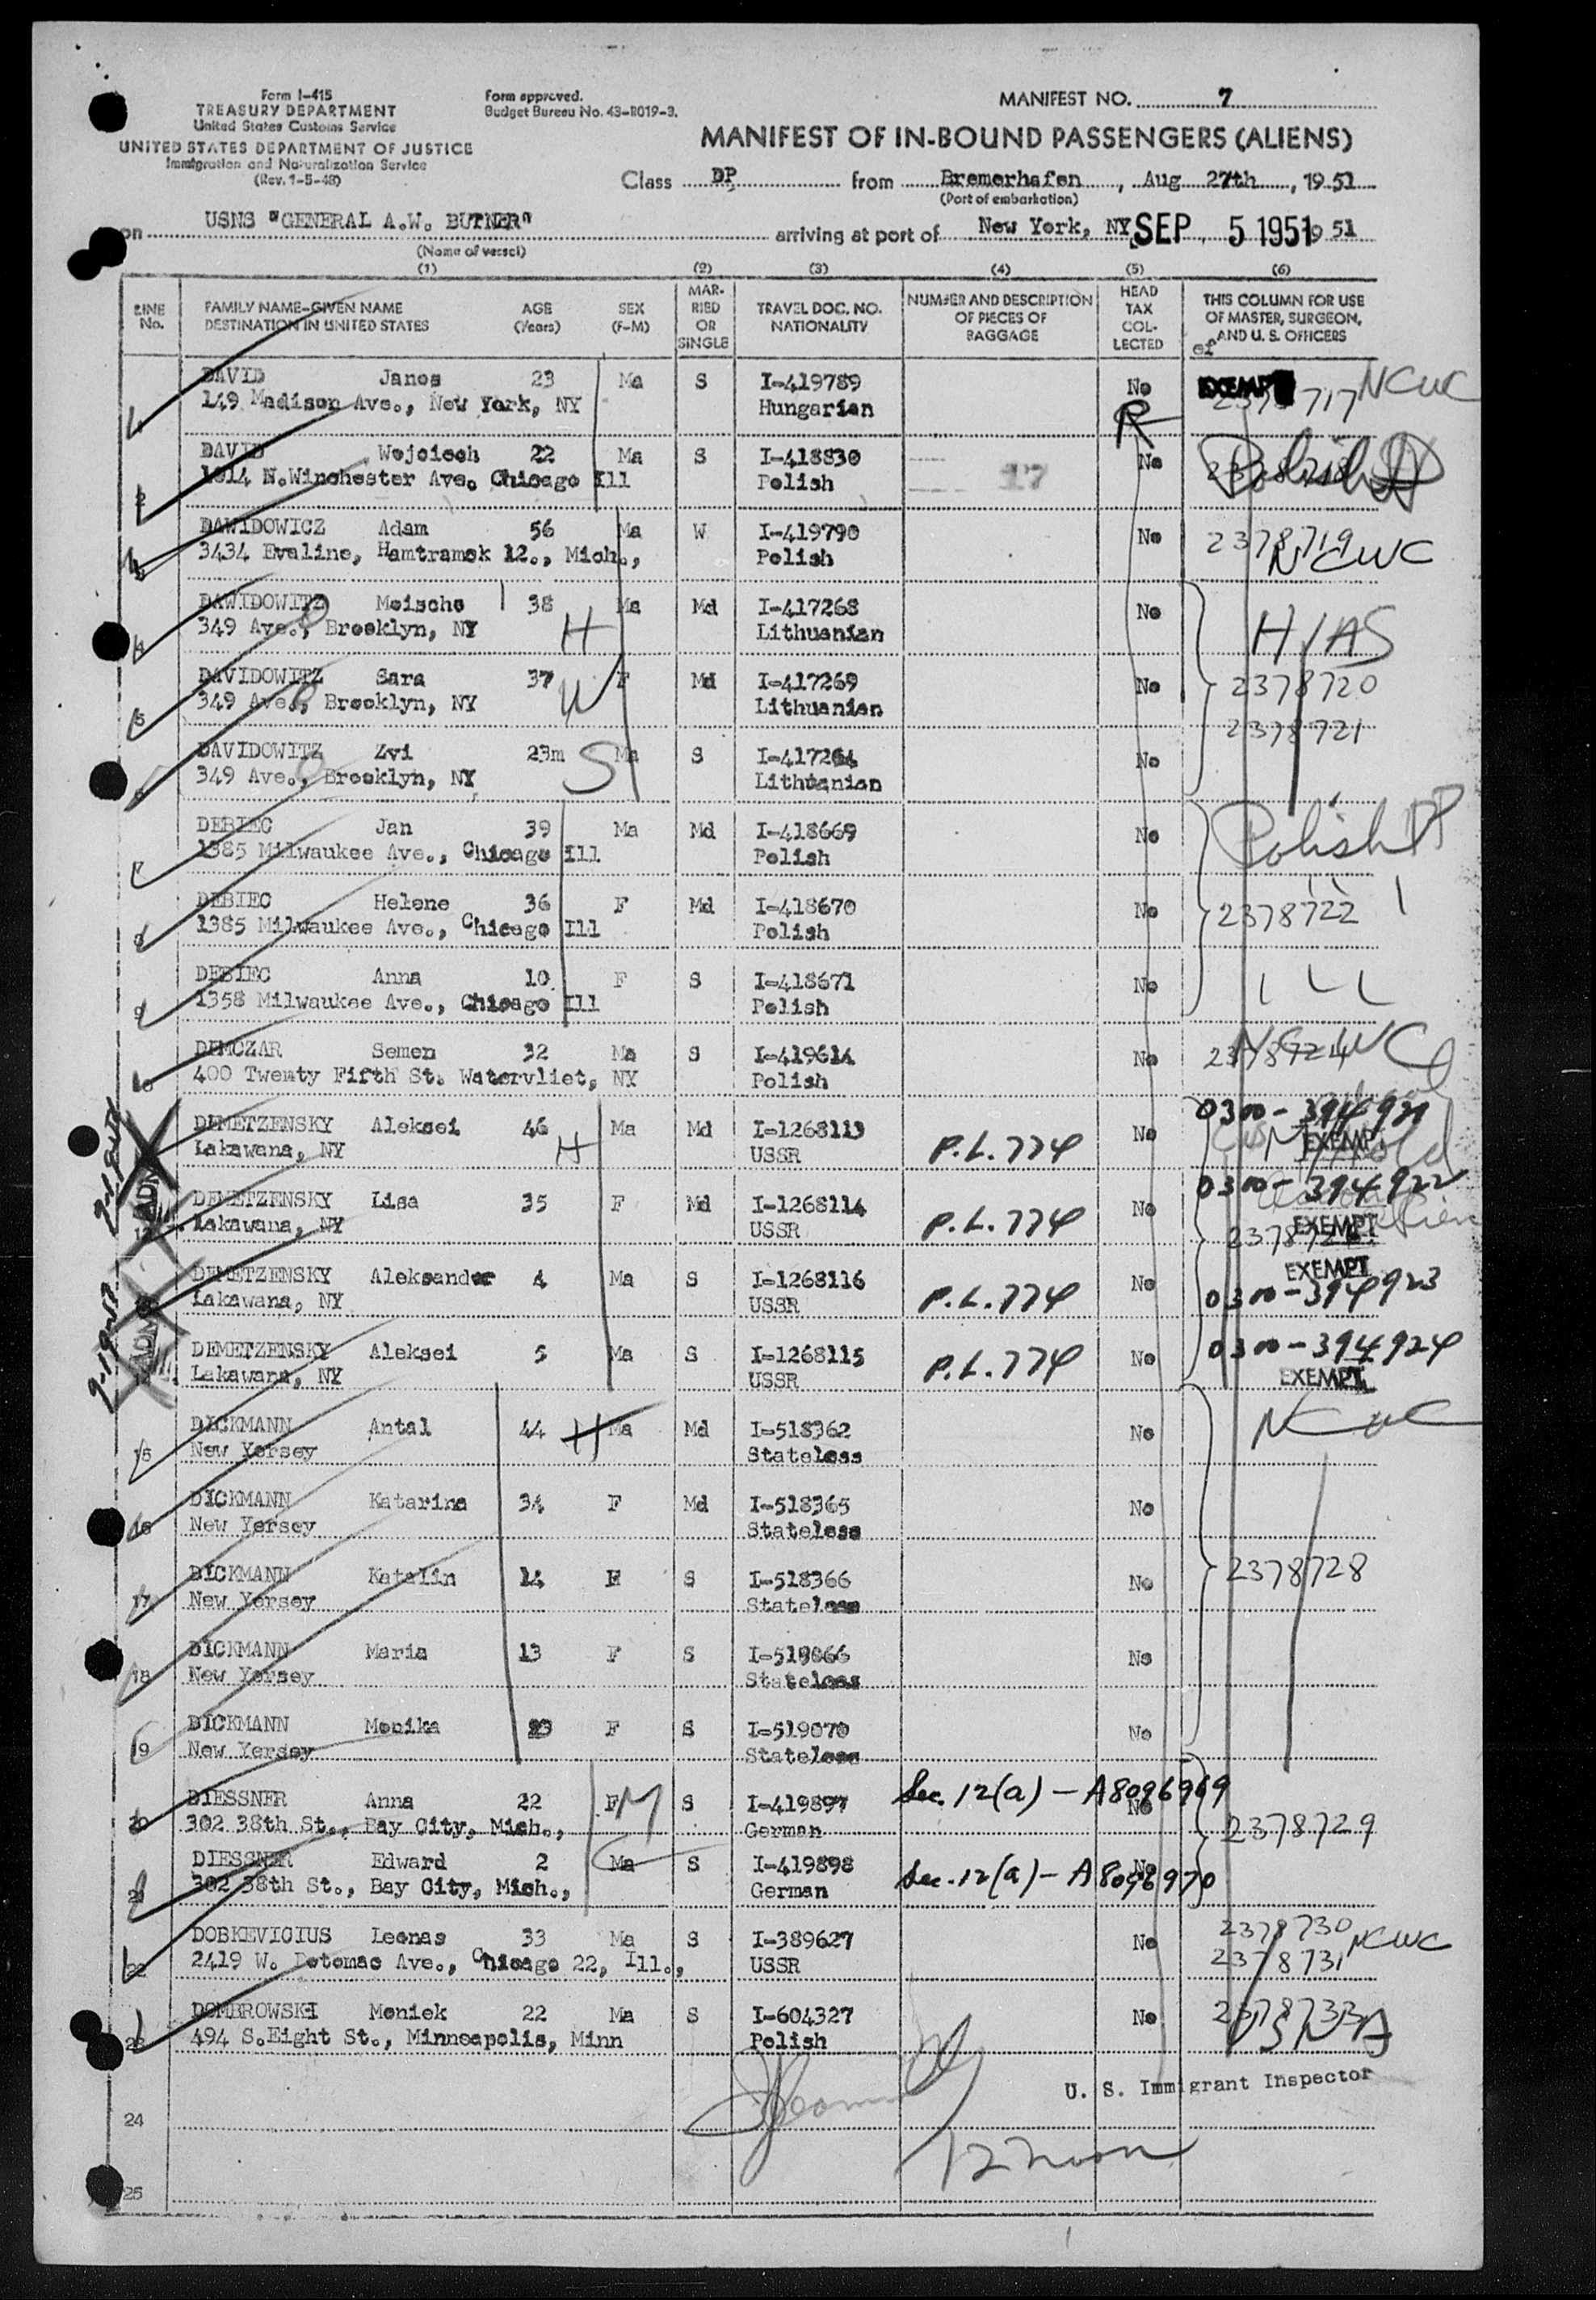 Form I-415
TREASURY DEPARTMENT
United States Customs Service
UNITED STATES DEPARTMENT OF JUSTICE
Immigration and Naturalization Service
(Rev. 1-5-48)
Form approved.
Budget Bureau No. 43-R019-3.
MANIFEST NO. 7
MANIFEST OF IN-BOUND PASSENGERS (ALIENS)
Class DP from Bremerhafen, Aug 27th, 1951
(Port of embarkation)
on USNS "GENERAL A.W. BUTNER" arriving at port of New York, NY SEP 5 1951 19 51
(Name of vessel)
(1) (2) (3) (4) (5) (6)
LINE No. FAMILY NAME-GIVEN NAME DESTINATION IN UNITED STATES AGE (Years) SEX (F-M) MARRIED OR SINGLE TRAVEL DOC. NO. NATIONALITY NUMBER AND DESCRIPTION OF PIECES OF BAGGAGE HEAD TAX COLLECTED THIS COLUMN FOR USE OF MASTER, SURGEON, AND U. S. OFFICERS
DAVID Janos 23 Ma S I-419789 No EXEMPT NCWC
149 Madison Ave., New York, NY Hungarian 717
DAVID Wojciech 22 Ma S I-418830 17 No Polish
1014 N.Winchester Ave. Chicago Ill Polish
DAWIDOWICZ Adam 56 Ma W I-419790 No 2378719
3434 Evaline, Hamtramck 12., Mich., Polish NCWC
DAWIDOWITZ Moische 38 H Ma Md I-417268 No HIAS
349 Ave., Brooklyn, NY Lithuanian
DAVIDOWITZ Sara 37 W F Md I-417269 No 2378720
349 Ave., Brooklyn, NY Lithuanian 2378721
DAVIDOWITZ Zvi 23m S Ma S I-417264 No
349 Ave., Brooklyn, NY Lithuanian
DEBIEC Jan 39 Ma Md I-418669 No Polish
1385 Milwaukee Ave., Chicago Ill Polish
DEBIEC Helene 36 F Md I-418670 No 2378722
1385 Milwaukee Ave., Chicago Ill Polish
DEBIEC Anna 10 F S I-418671 No
1358 Milwaukee Ave., Chicago Ill Polish
DEMCZAR Semen 32 Ma S I-419614 No 2378724 NCWC
400 Twenty Fifth St. Watervliet, NY Polish
DEMETZENSKY Aleksei 46 H Ma Md I-1268113 P.L.774 No 0300-394921
Lakawana, NY USSR EXEMPT
DEMETZENSKY Lisa 35 F Md I-1268114 P.L.774 No 0300-394922
Lakawana, NY USSR EXEMPT
DEMETZENSKY Aleksander 4 Ma S I-1268116 P.L.774 No EXEMPT
Lakawana, NY USSR 0300-394923
DEMETZENSKY Aleksei 5 Ma S I-1268115 P.L.774 No 0300-394924
Lakawana, NY USSR EXEMPT
15 DICKMANN Antal 44 H Ma Md I-518362 No NCWC
New Yersey Stateless
16 DICKMANN Katarina 34 F Md I-518365 No
New Yersey Stateless
17 DICKMANN Katalin 14 F S I-518366 No 2378728
New Yersey Stateless
18 DICKMANN Maria 13 F S I-519066 No
New Yersey Stateless
19 DICKMANN Monika F S I-519070 No
New Yersey Stateless
20 DIESSNER Anna 22 F M S I-419897 Sec. 12(a) - A8096969 No
302 38th St., Bay City, Mich., German 2378729
21 DIESSNER Edward 2 Ma C S I-419898 Sec. 12(a) - A8096970 No
302 38th St., Bay City, Mich., German
22 DOBKEVICIUS Leonas 33 Ma S I-389627 No 2378730 NCWC
2419 W. Potomac Ave., Chicago 22, Ill., USSR 2378731
23 DOMBROWSKI Moniek 22 Ma S I-604327 No 2378733
494 S.Eight St., Minneapolis, Minn Polish USNA
U. S. Immigrant Inspector
24
12 noon
25